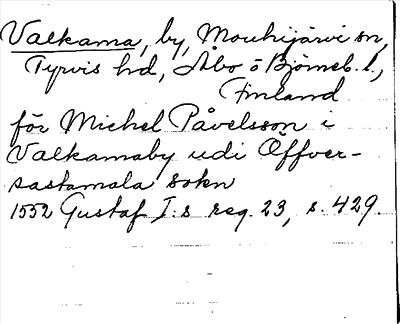 Valkama, by, Mouhijärvi sn,
Tyrvis hd, Åbo o Björneb. l.,
Finland
för Michel Påvelsson i
Valkamaby udi Öffver-
sastamala sokn
1552 Gustaf I:s reg. 23, s. 429.